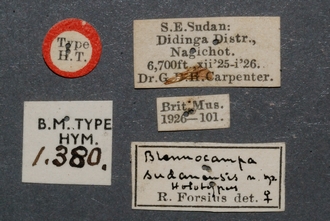 Type
H.T.
S.E. Sudan:
Didinga Distr.,
Nagichot.
6,700ft. xii'25-i'26.
Dr. G.D.H. Carpenter.
Brit. Mus.
1926—101.
B.M. TYPE
HYM.
1.380.
Blennocampa
sudanensis n. sp.
Holotypus
R. Forsius det. ♀